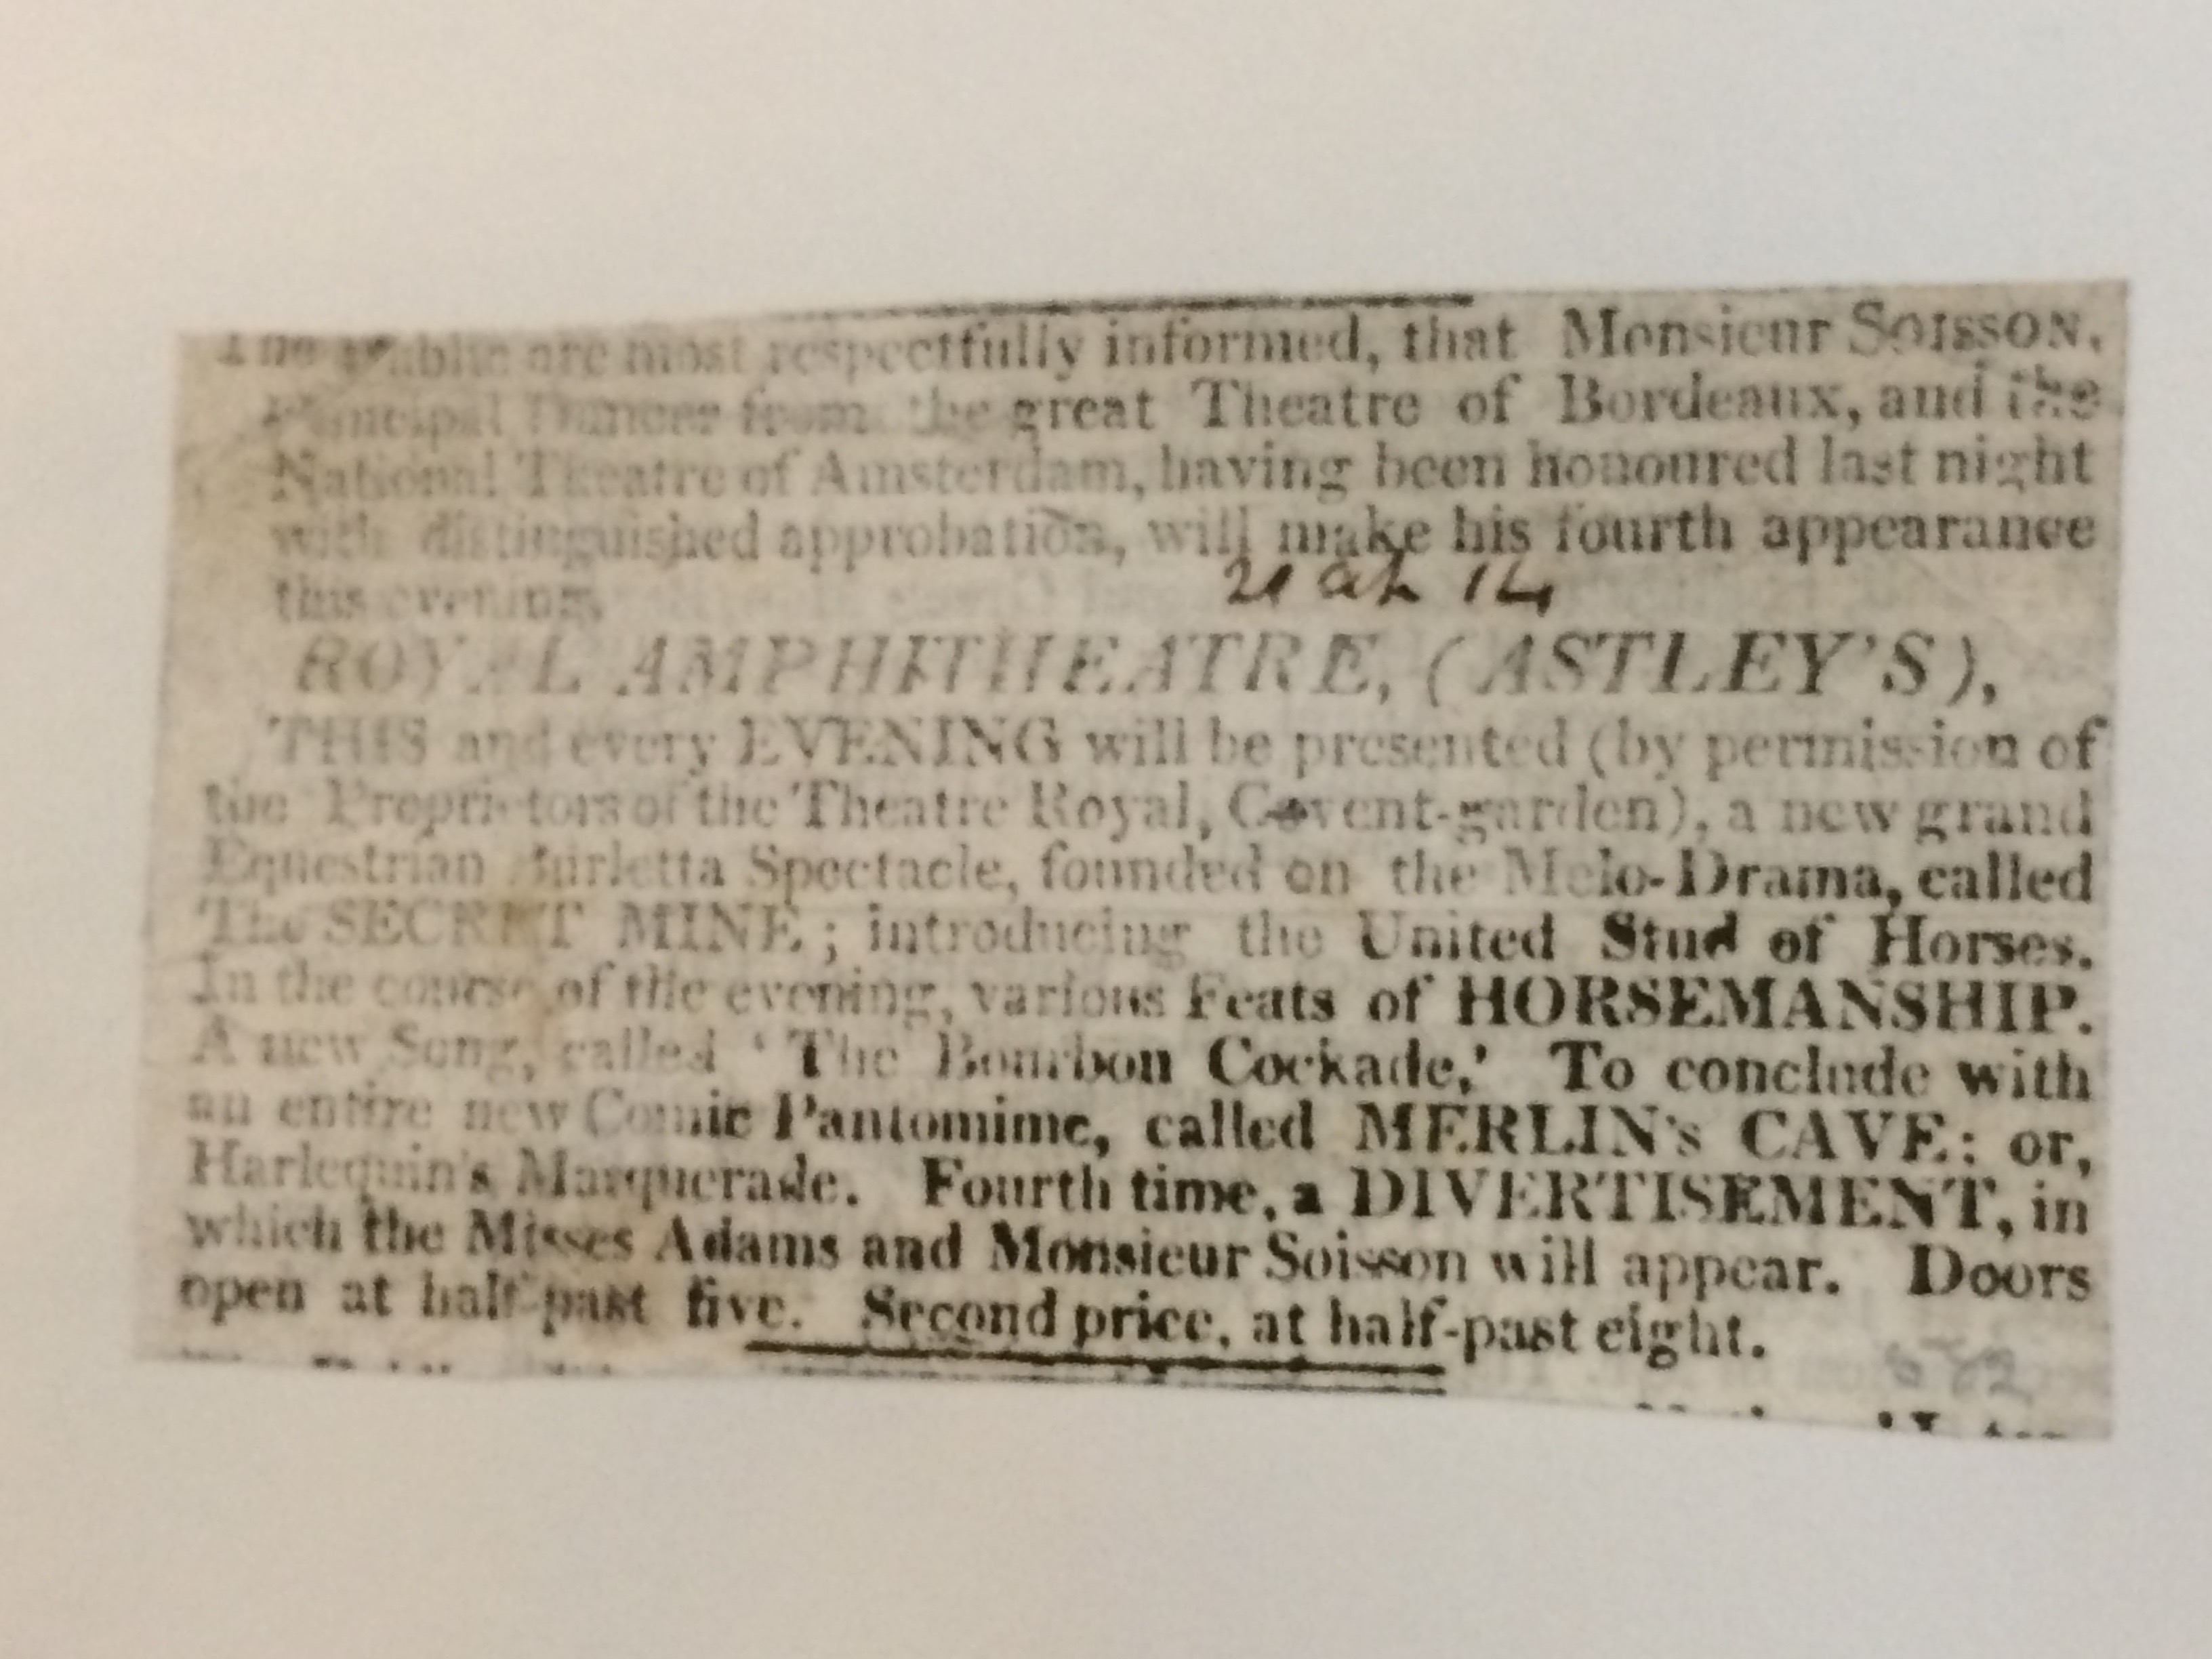 The Public are most respectfully informed, that Monsieur SOISSON,
Principal Dancer from the great Theatre of Bordeaux, and the
National Theatre of Amsterdam, having been honoured last night
with distinguished approbation, will make his fourth appearance
this evening.
21 ap 14
ROYAL AMPHITHEATRE, (ASTLEY'S),
THIS and every EVENING will be presented (by permission of
the Proprietors of the Theatre Royal, Covent-garden), a new grand
Equestrian Burletta Spectacle, founded on the Melo-Drama, called
The SECRET MINE; introducing the United Stud of Horses.
In the course of the evening, various Feats of HORSEMANSHIP.
A new Song, called 'The Bourbon Cockade.' To conclude with
an entire new Comic Pantomime, called MERLIN's CAVE; or,
Harlequin's Masquerade. Fourth time, a DIVERTISEMENT, in
which the Misses Adams and Monsieur Soisson will appear. Doors
open at half-past five. Second price, at half-past eight.